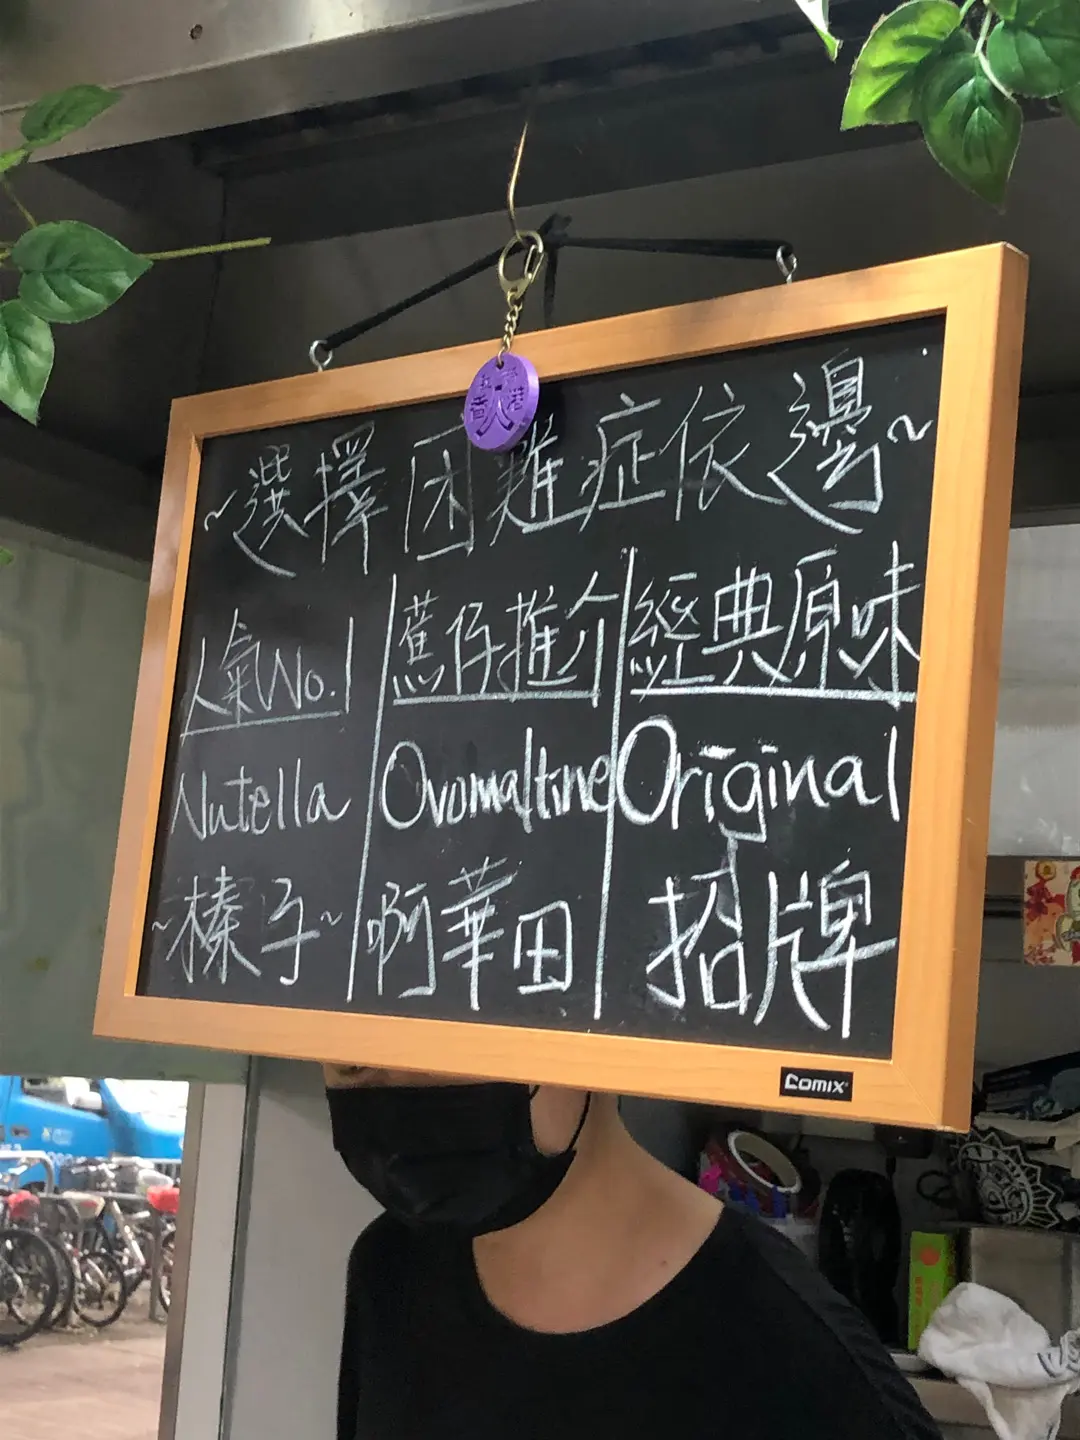 ~選擇困難症依邊~
人氣No.1
Nutella
~榛子~
蕉仔推介
Ovomaltine
啊華田
經典原味
Original
招牌
Comix